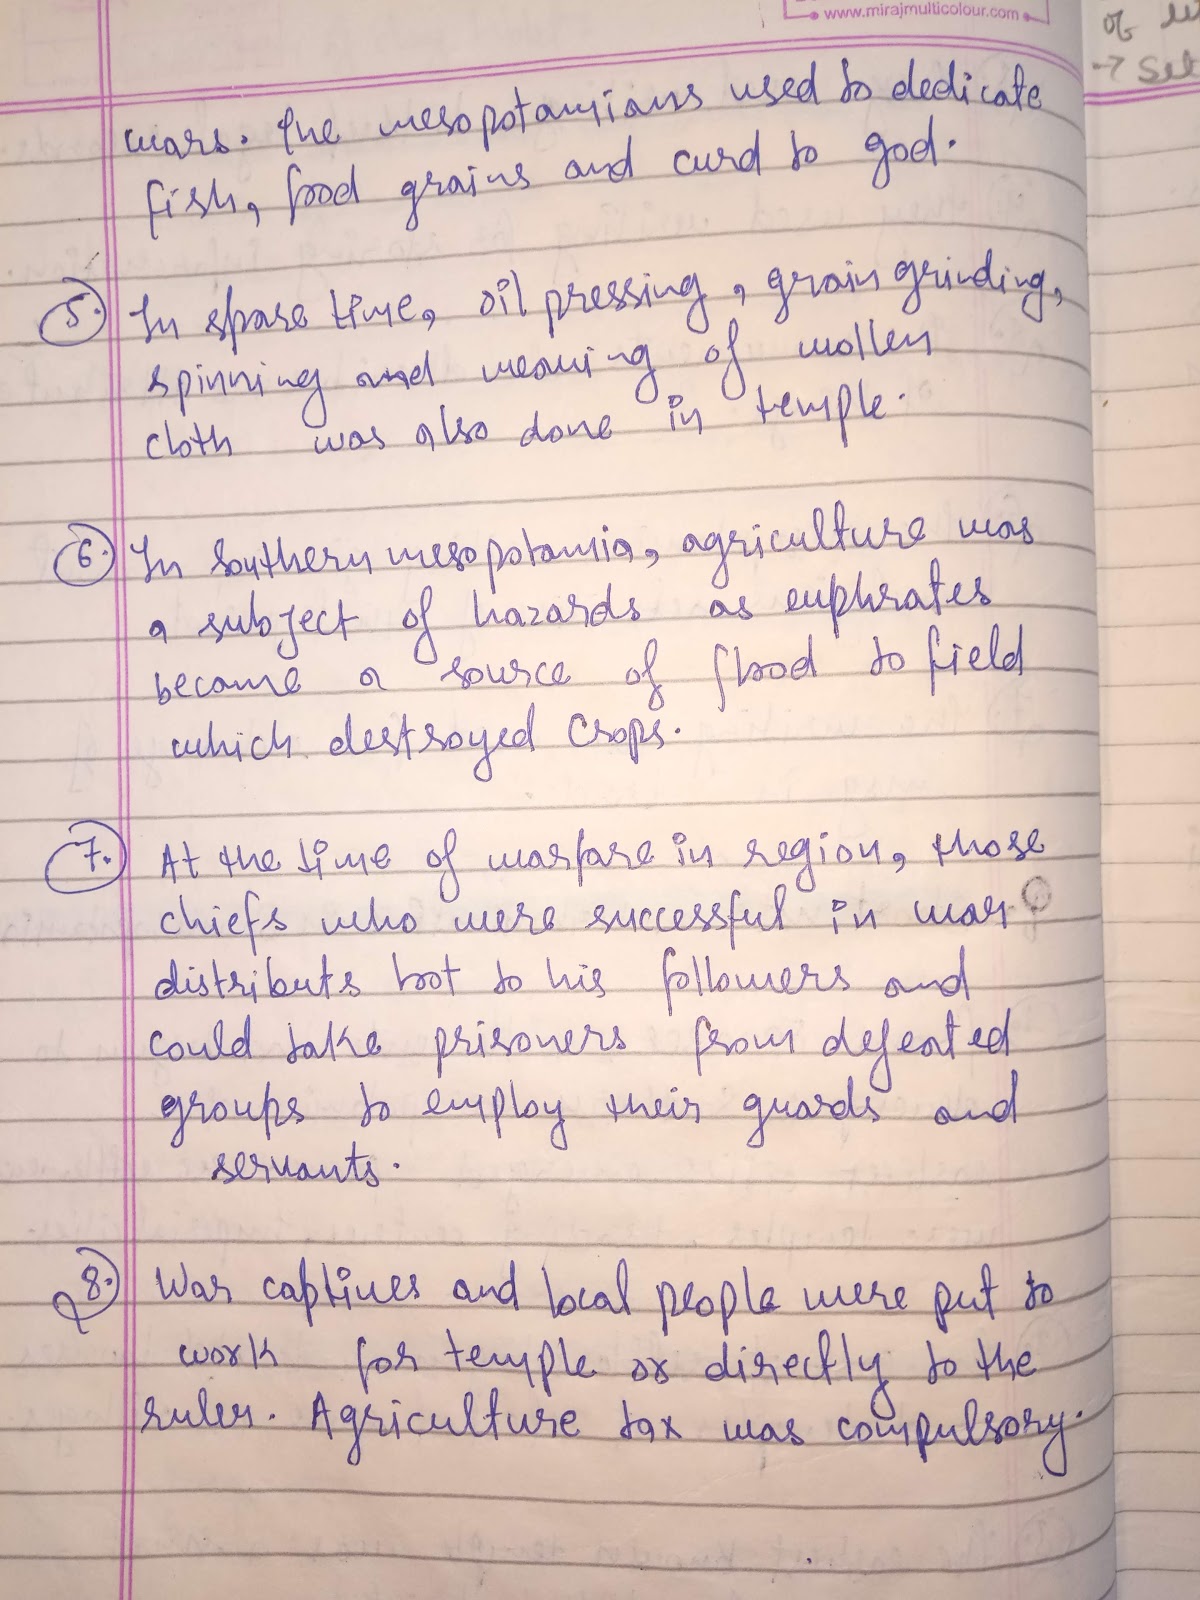 www.mirajmulticolour.com
of
→ Set
wars. The mesopotamians used to dedicate
fish, food grains and curd to god.
5. In spare time, oil pressing, grain grinding,
spinning and weaving of wollen
cloth was also done in temple.
6. In southern mesopotamia, agriculture was
a subject of hazards as euphrates
became a source of flood to field
which destroyed crops.
7. At the time of warfare in region, those
chiefs who were successful in war
distributs loot to his followers and
could take prisoners from defeated
groups to employ their guards and
servants.
8. War captives and local people were put to
work for temple or directly to the
ruler. Agriculture tax was compulsory.